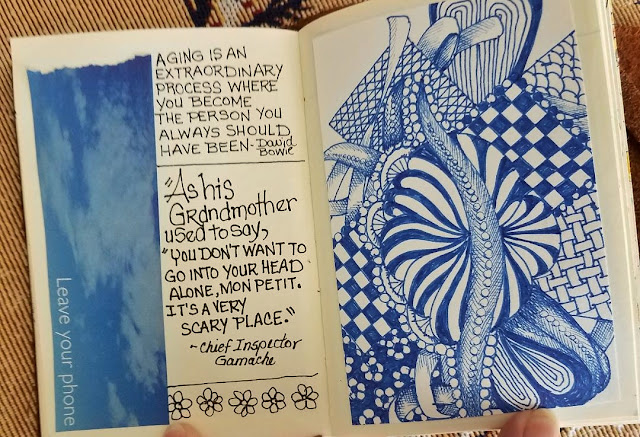 AGING IS AN
EXTRAORDINARY
PROCESS WHERE
YOU BECOME
THE PERSON YOU
ALWAYS SHOULD
HAVE BEEN - David
Bowie
"As his
Grandmother
used to say,
"YOU DON'T WANT TO
GO INTO YOUR HEAD
ALONE, MON PETIT.
IT'S A VERY
SCARY PLACE."
- Chief Inspector
Gamache
Leave your phone